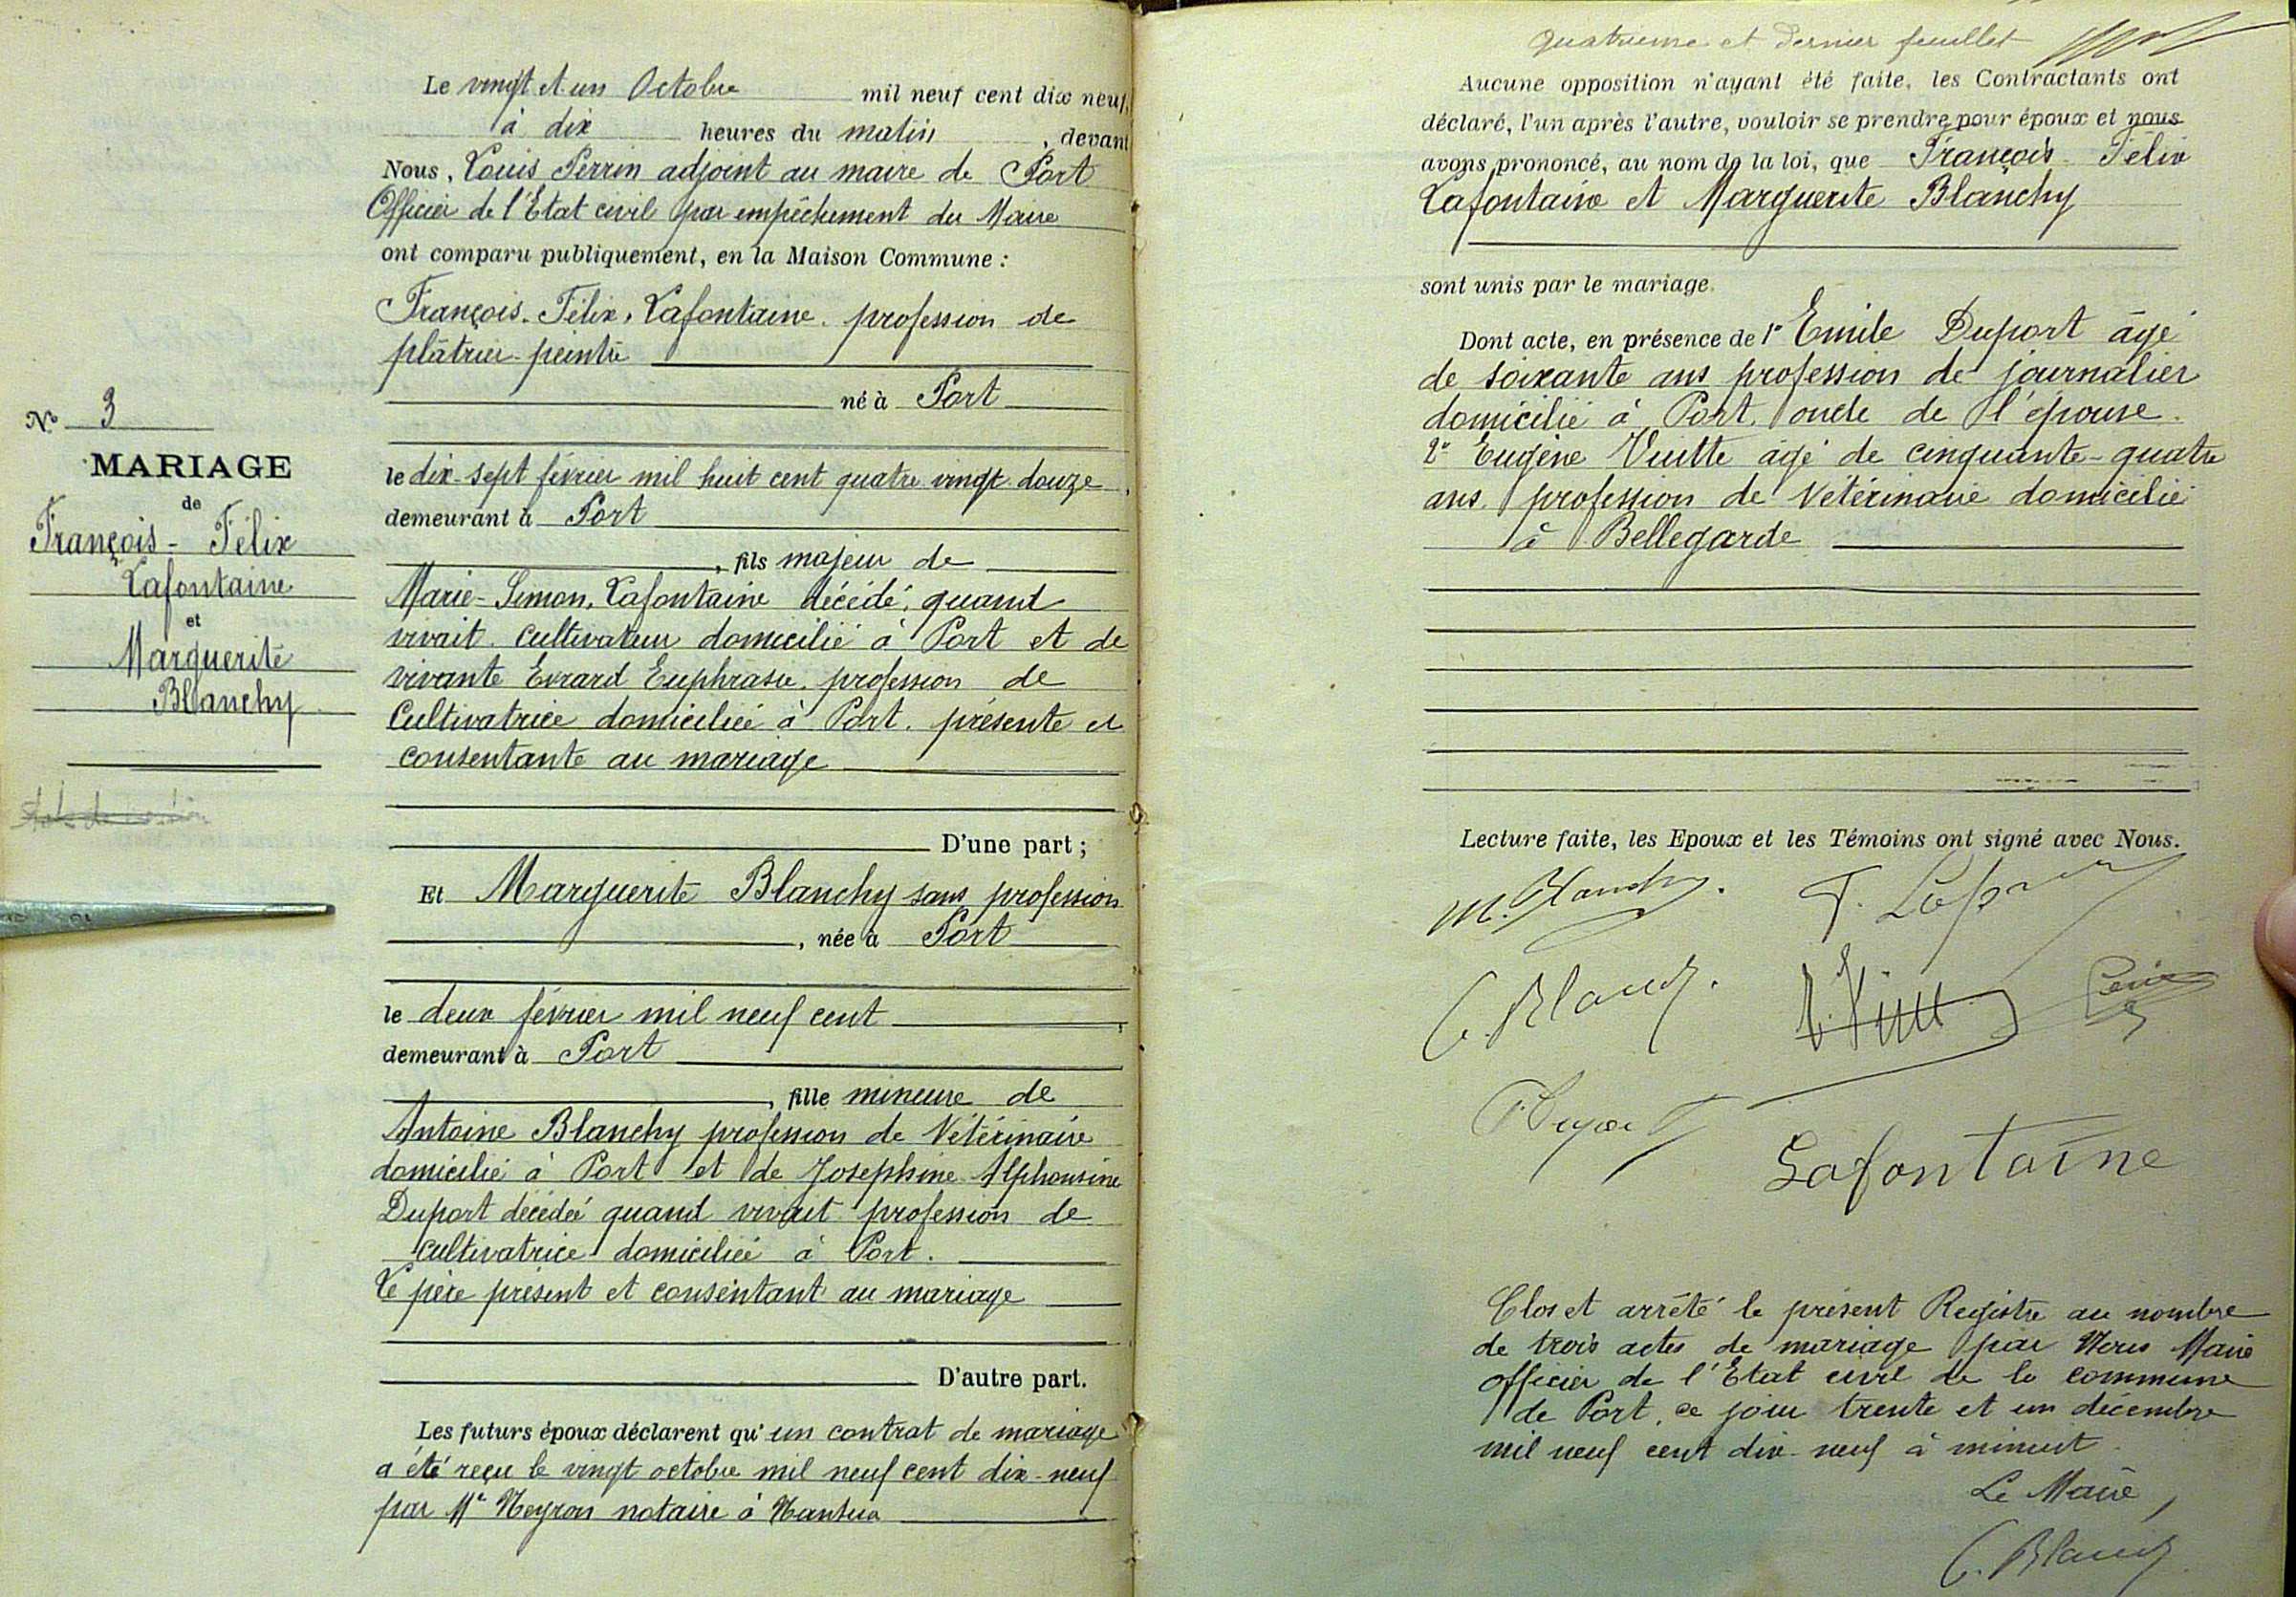 Le vingt et un Octobre mil neuf cent dix neuf,
à dix heures du matin, devant
Nous, Louis Perrin adjoint au maire de Port
Officier de l'Etat civil par empêchement du Maire
ont comparu publiquement, en la Maison Commune :
François-Félix, Lafontaine. profession de
plâtrier-peintre
né à Port
le dix-sept février mil huit cent quatre vingt douze,
demeurant à Port
, fils majeur de
Marie-Simon, Lafontaine décédé, quand
vivait cultivateur domicilié à Port et de
vivante Evrard Euphrasie, profession de
Cultivatrice domiciliée à Port. présente et
consentante au mariage
D'une part ;
Et Marguerite Blanchy sans profession
, née à Port
le deux février mil neuf cent,
demeurant à Port
, fille mineure de
Antoine Blanchy profession de Vétérinaire
domicilié à Port et de Josephine Alphonsine
Duport décédée quand vivait profession de
cultivatrice domiciliée à Port.
Le père présent et consentant au mariage
D'autre part.
Les futurs époux déclarent qu'un contrat de mariage
a été reçu le vingt octobre mil neuf cent dix-neuf
par Me Neyron notaire à Nantua
No 3
MARIAGE
de
François-Félix
Lafontaine
et
Marguerite
Blanchy
Quatrième et Dernier feuillet
Aucune opposition n'ayant été faite, les Contractants ont
déclaré, l'un après l'autre, vouloir se prendre pour époux et nous
avons prononcé, au nom de la loi, que François-Félix
Lafontaine et Marguerite Blanchy
sont unis par le mariage.
Dont acte, en présence de 1° Emile Duport âgé
de soixante ans profession de journalier
domicilié à Port, oncle de l'épouse.
2° Eugène Vuitte âgé de cinquante-quatre
ans profession de Vétérinaire domicilié
à Bellegarde
Lecture faite, les Epoux et les Témoins ont signé avec Nous.
M. Blanchy.
Lafontaine
Clos et arrêté le présent Registre au nombre
de trois actes de mariage par Nous Maire
officier de l'Etat civil de la commune
de Port, ce jour trente et un décembre
mil neuf cent dix-neuf à minuit
Le Maire,